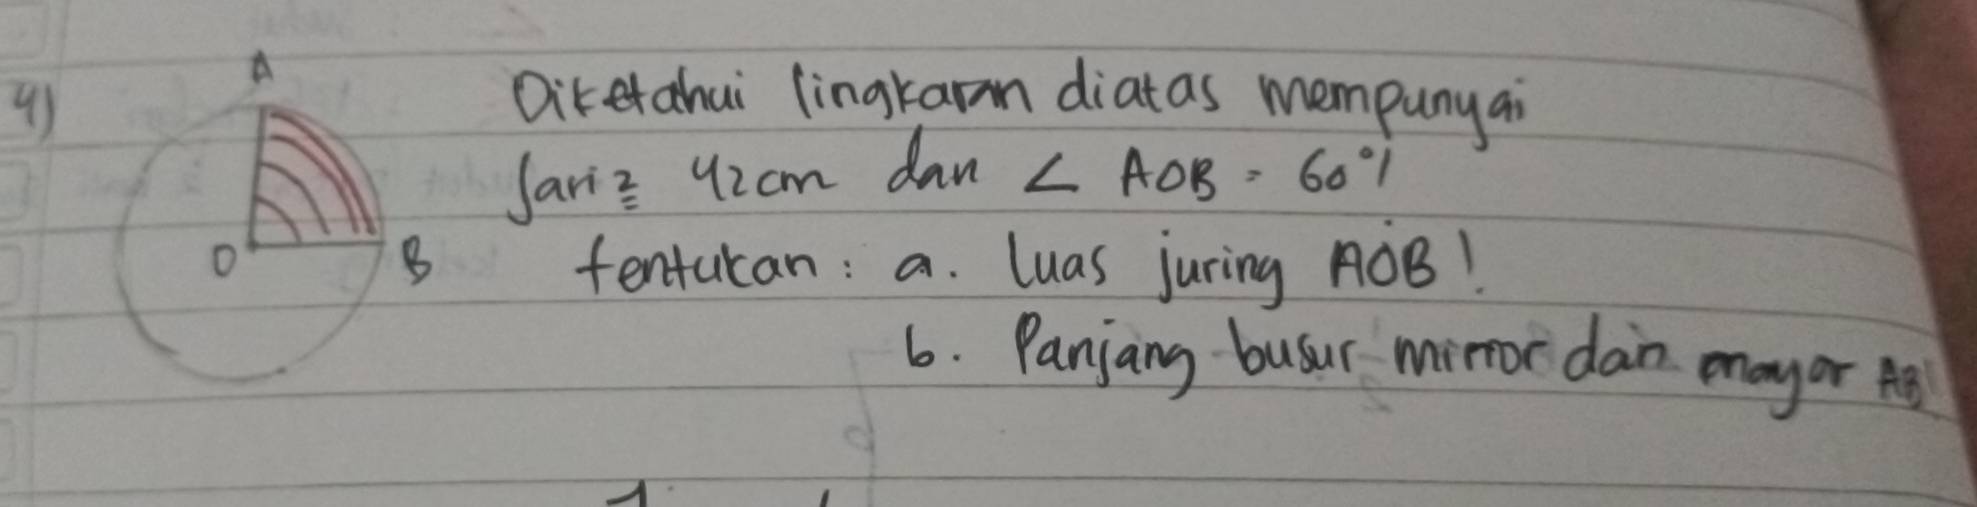 4)
A
O
B
Diketahui lingkaran diatas mempunyai
Jari2 42cm dan ∠ AOB = 60°!
tentukan : a. luas juring AOB!
b. Panjang busur minor dan mayor AB!